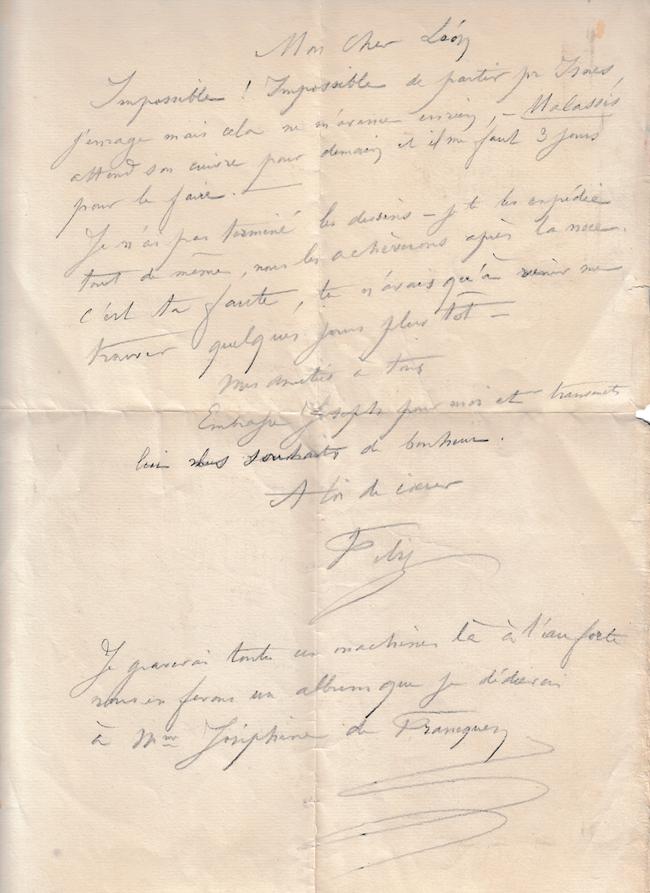 Mon Cher Léon
Impossible ! Impossible de partir pr
j'enrage mais cela ne m'avance en rien, – Malassis
attend son cuivre pour demain et il me faut 3 jours
pour le faire. –
Je n'ai pas terminé les dessins – je te les expédie
tout de même, nous les achèverons après la noce.
c'est ta faute, tu n'avais qu'à venir me
trouver quelques jours plus tôt –
Mes amitiés à tous
Embrasse Joseph pour moi et transmets
lui mes souhaits de bonheur.
A toi de cœur
Je graverai toutes ces machines là à l'eau forte
nous en ferons un album que je dédierai
à Mme Joséphine de